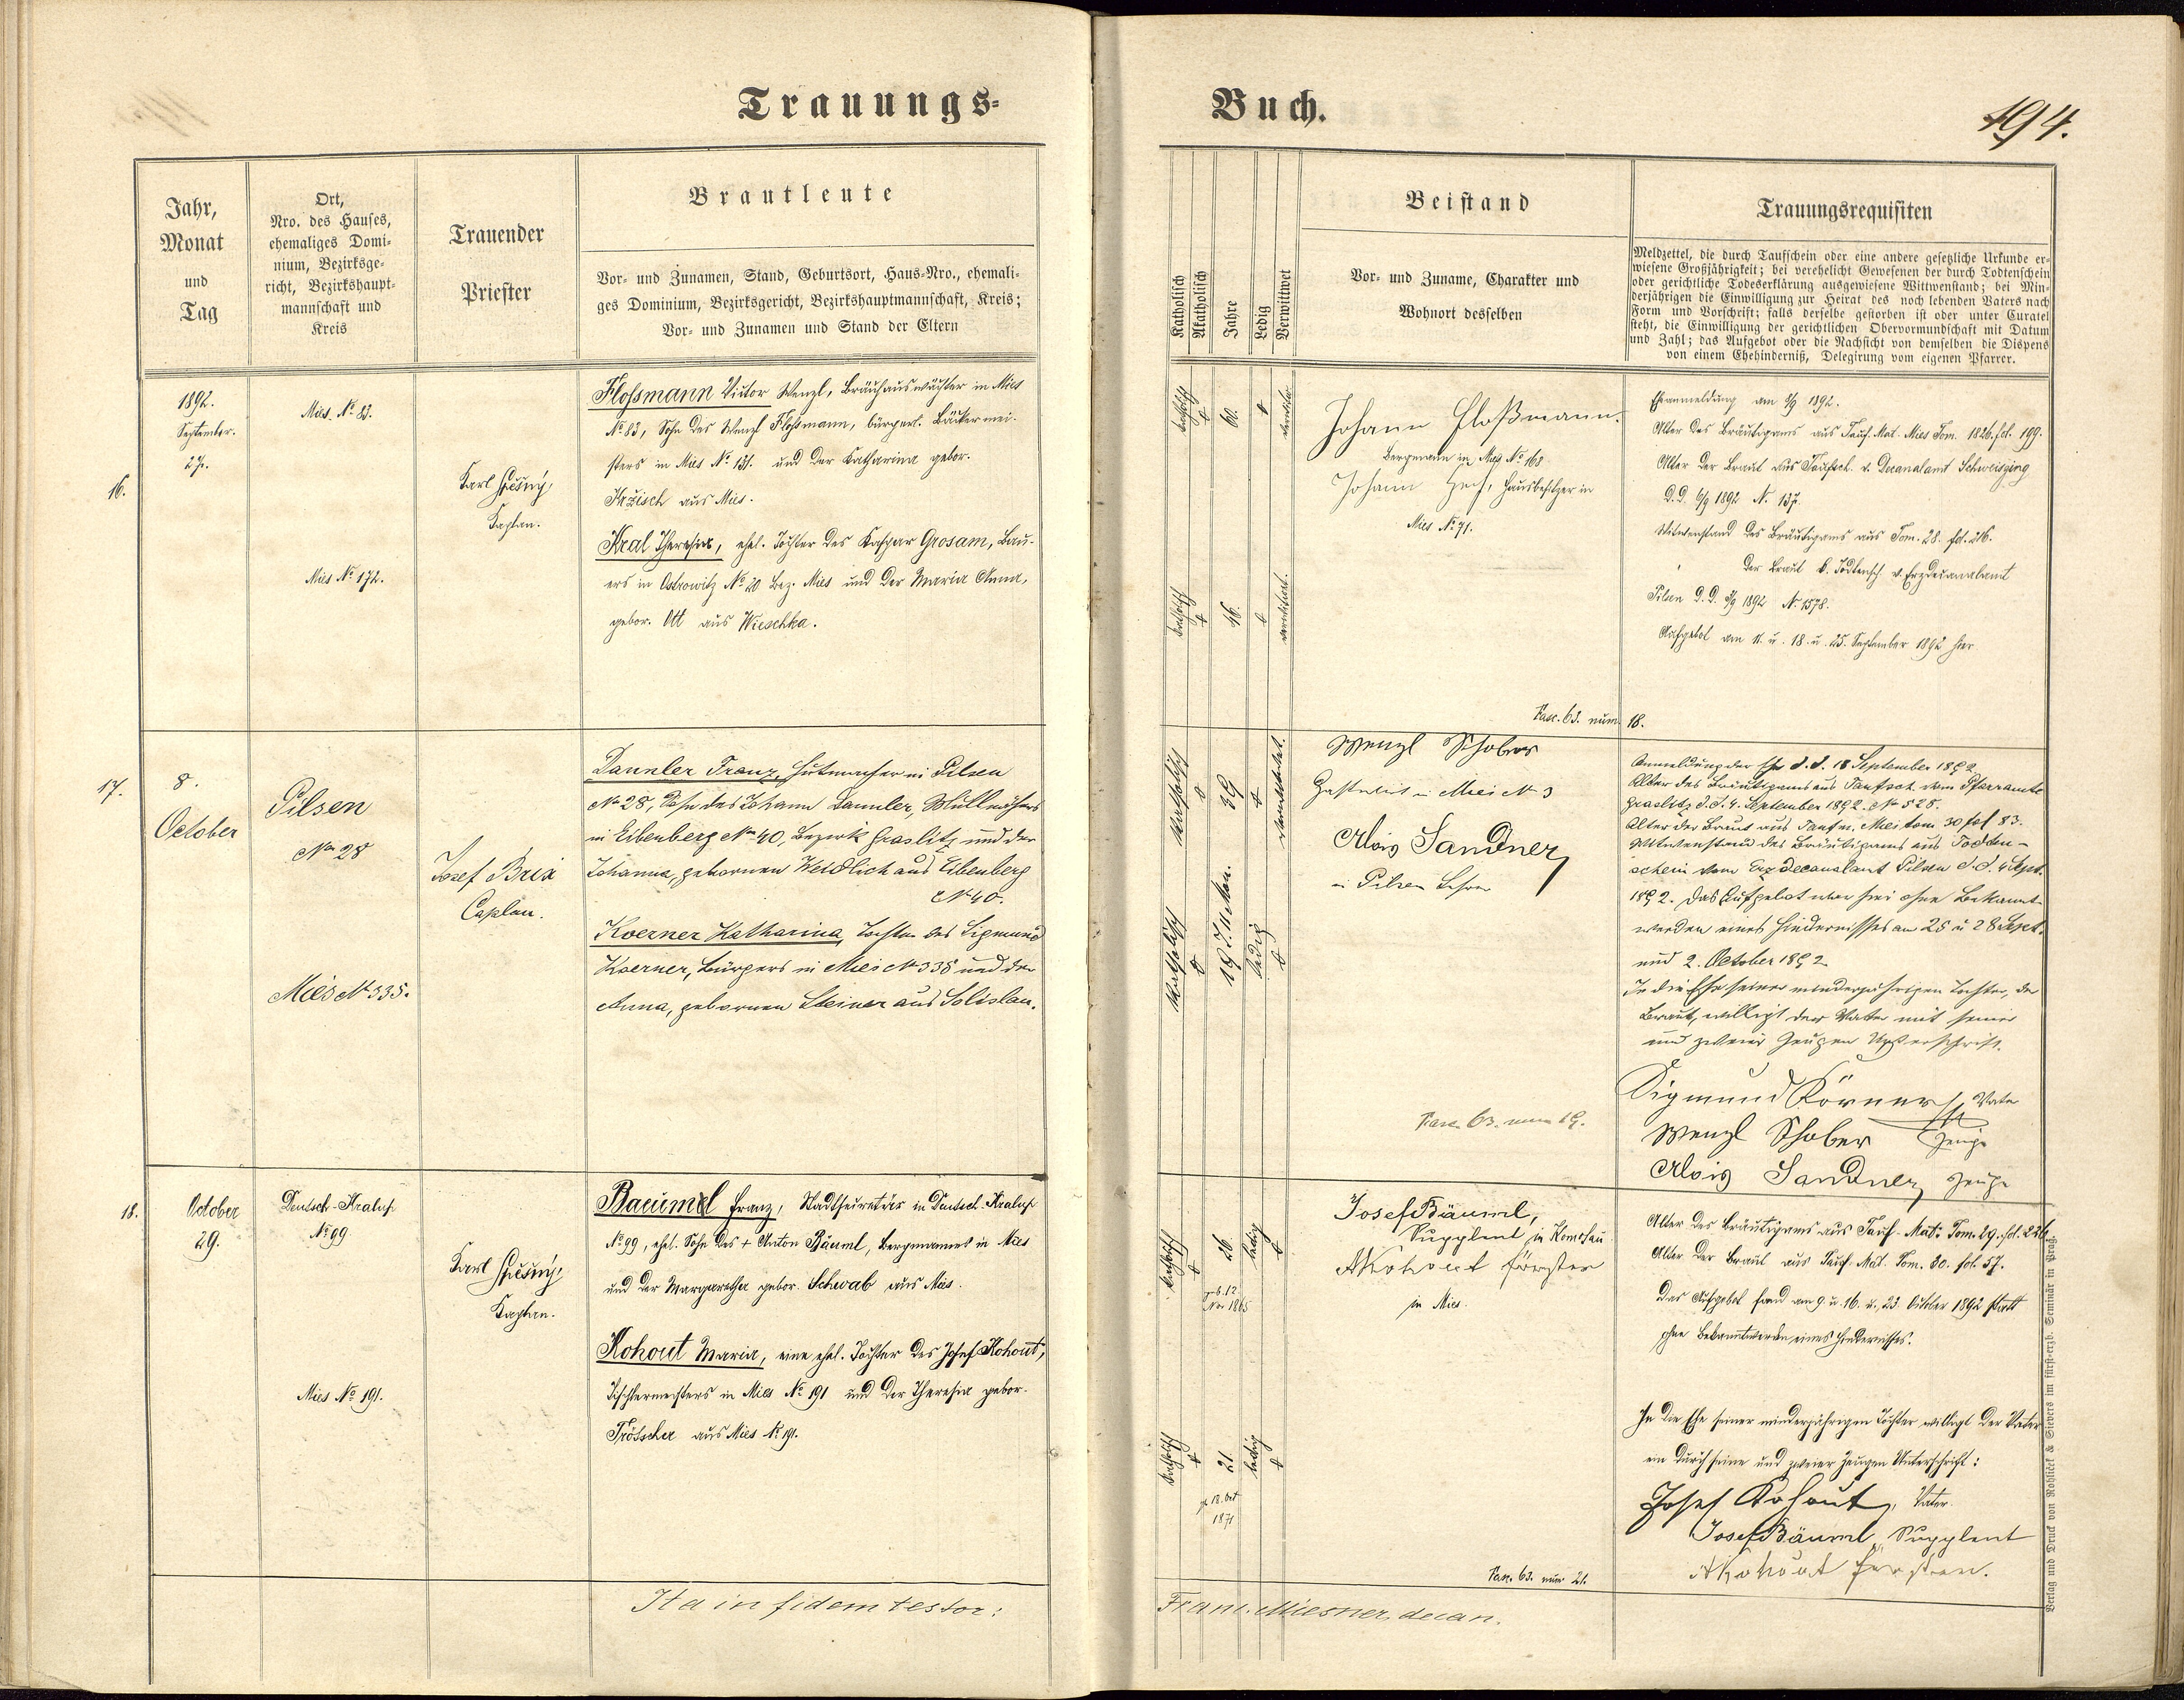 Trauungs-
Buch.
194.
Jahr,
Monat
und
Tag
Ort,
Nro. des Hauses,
ehemaliges Domi-
nium, Bezirksge-
richt, Bezirkshaupt-
mannschaft und
Kreis
Trauender
Priester
Brautleute
Vor- und Zunamen, Stand, Geburtsort, Haus-Nro., ehemali-
ges Dominium, Bezirksgericht, Bezirkshauptmannschaft, Kreis;
Vor- und Zunamen und Stand der Eltern
Katholisch
Akatholisch
Jahre
Ledig
Verwittwet
Beistand
Vor- und Zuname, Charakter und
Wohnort desselben
Trauungsrequisiten
Meldzettel, die durch Taufschein oder eine andere gesetzliche Urkunde er-
wiesene Großjährigkeit; bei verehelicht Gewesenen der durch Todtenschein
oder gerichtliche Todeserklärung ausgewiesene Wittwenstand; bei Min-
derjährigen die Einwilligung zur Heirat des noch lebenden Vaters nach
Form und Vorschrift; falls derselbe gestorben ist oder unter Curatel
steht, die Einwilligung der gerichtlichen Obervormundschaft mit Datum
und Zahl; das Aufgebot oder die Nachsicht von demselben die Dispens
von einem Ehehinderniß, Delegirung vom eigenen Pfarrer.
16.
1892.
September.
27.
Mies. No 83.
Mies No 172.
Karl Špěšný,
Kaplan.
Flossmann Victor Wenzl, Bräuhauswächter in Mies
No 83, Sohn des Wenzl Flossmann, bürgerl. Bäckermei-
sters in Mies No 131. und der Katharina gebor.
Krzisch aus Mies.
Kral Theresia, ehel. Tochter des Kaspar Grosam, Bau-
ers in Ostrowitz No 20 Bez. Mies und der Maria Anna,
gebor. Ott aus Wieschka.
katholisch
60.
katholisch
46.
verwitwet.
Johann Floßmann.
Bergmann in Mies No 168
Johann
Hausbesitzer in
Mies No 71.
Eheanmeldung am 8/9 1892.
Alter des Bräutigams aus Tauf. Mat. Mies Tom. 1826. fol. 199.
Alter der Braut aus Taufsch. v. Decanalamt Schweissing
D.D. 6/9 1892 N. 137.
Witwenstand des Bräutigams aus Tom. 28. fol. 216.
" der Braut d. Todtensch. v. Erzdecanalamt
Pilsen D.D. 3/9 1892 No 1578.
Aufgebot am 11. u. 18. u. 25. September 1892 hier
Fasc. 63. num. 18.
17.
8.
October
Pilsen
No 28
Mies No 335.
Josef Brix
Caplan.
Dannler Franz, Hutmacher in Pilsen
No 28, Sohn des Johann Dannler,
in Eibenberg No 40, Bezirk Graslitz und der
Johanna, gebornen Weidlich aus Eibenberg
No 40.
Koerner Katharina, Tochter des Sigmund
Koerner, Bürgers in Mies No 335 und der
Anna, gebornen Steiner aus Solislau.
katholisch
39
verwittwet.
katholisch
19 J. 11 Mon.
ledig
Wenzl Schober
Gastwirt in Mies No 3
Alois Sandner,
in Pilsen Lehrer
Anmeldung der Ehe d. d. 18 September 1892
Alter des Bräutigams aus Taufsch. vom Pfarramte
Graslitz d. d. 4. September 1892. No 528.
Alter der Braut aus Taufm. Mies tom. 30 fol 83.
Wittwenstand des Bräutigams aus Todten-
schein vom Erzdecanalamt Pilsen d. d. 4 Sept.
1892. Das Aufgebot war hier ohne Bekannt-
werden eines Hindernisses am 25 u 28 Sept.
und 2. October 1892
In die Ehe seiner minderjährigen Tochter, der
Braut, willigt der Vater mit seiner
und zweier Zeugen Unterschrift.
Sigmund Körner Vater
Wenzl Schober Zeuge
Alois Sandner, Zeuge
Fasc. 63. num 19.
18.
October
29.
Deutsch-Kralup
No 99
Mies No 191.
Karl Špěšný,
Kaplan.
Baeuml Franz, Stadtsecretär in Deutsch-Kralup
No 99, ehel. Sohn des + Anton Bäuml, Bergmannes in Mies
und der Margaretha gebor. Schwab aus Mies.
Kohout Maria, eine ehel. Tochter des Josef Kohout,
Tischlermeisters in Mies No 191 und der Theresia gebor.
Trötscher aus Mies No 191.
katholisch
26.
geb. 12
Nov 1865
ledig
katholisch
21.
geb 18. Oct
1871
ledig
Josef Bäuml,
Supplent in Komotau.
AKohout Förster
in Mies.
Alter des Bräutigams aus Tauf-Mat: Tom. 29. fol. 226
Alter der Braut aus Tauf. Mat. Tom. 30. fol. 57.
Das Aufgebot fand am 9. u. 16. u. 23. October 1892 statt
ohne Bekanntwerden eines Hindernisses.
In die Ehe seiner minderjährigen Tochter willigt der Vater
ein durch seine und zweier Zeugen Unterschrift:
Josef Kohout, Vater.
Josef Bäuml, Supplent
AKohout Förster.
Fasc. 63. num 21.
Ita in fidem testor:
Franc. Miesner, decan.
Verlag und Druck von Rohliček & Sievers im fürst-erzb. Seminär in Prag.